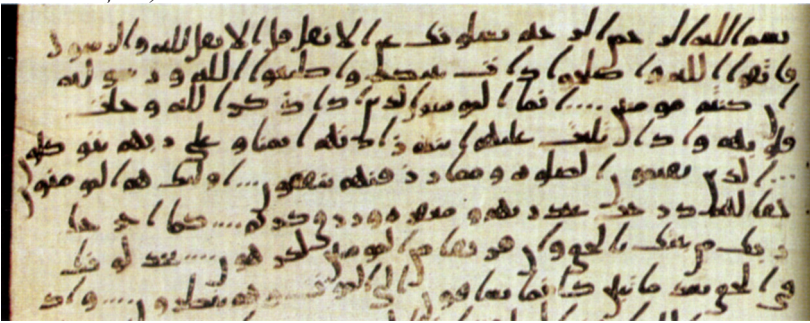 بسم الله الرحمن الرحيم يسلونك عن الانفل قل الانفل لله والرسول
فاتقوا الله واصلحوا ذات بينكم واطيعوا الله ورسوله
ان كنتم مومنين .... انما المومنون الذين اذا ذكر الله وجلت
قلوبهم واذا تليت عليهم ايته زادتهم ايمنا وعلى ربهم يتوكلون
.... الذين يقيمون الصلوه ومما رزقنهم ينفقون .... اوليك هم المومنون
حقا لهم درجت عند ربهم ومغفره ورزق كريم .... كما اخرجك
ربك من بيتك بالحق وان فريقا من المومنين لكرهون .... يجدلونك
في الحق بعد ما تبين كانما يساقون الى الموت وهم ينظرون .... واذ